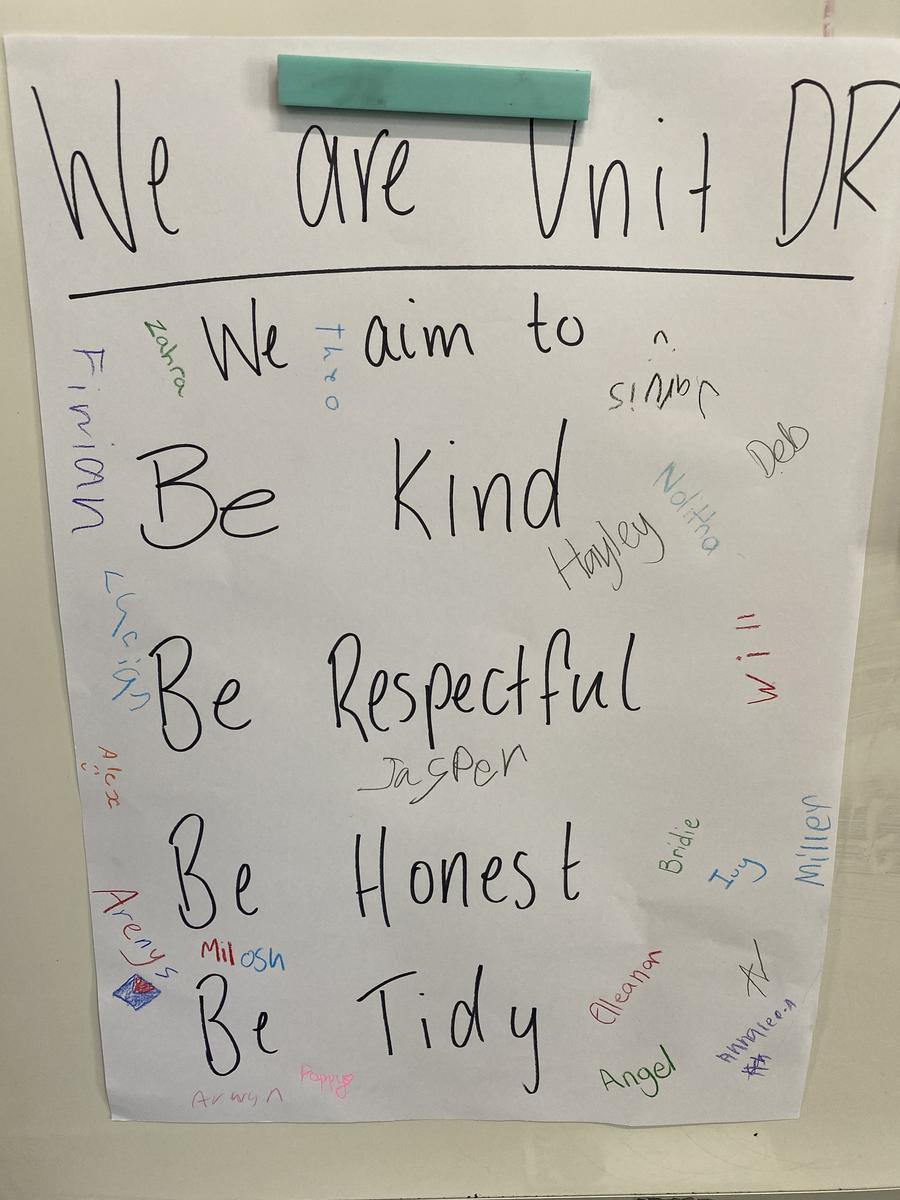 We are Unit DR
We aim to
Zahra
Theo
Finian
Jarvis
Be Kind
Deb
Nolitha
Hayley
Lucian
Will
Be Respectful
Jasper
Alex
Be Honest
Bridie
Ivy
Miller
Arenys
Milosh
Be Tidy
Eleanor
Angel
Poppy
Arwyn